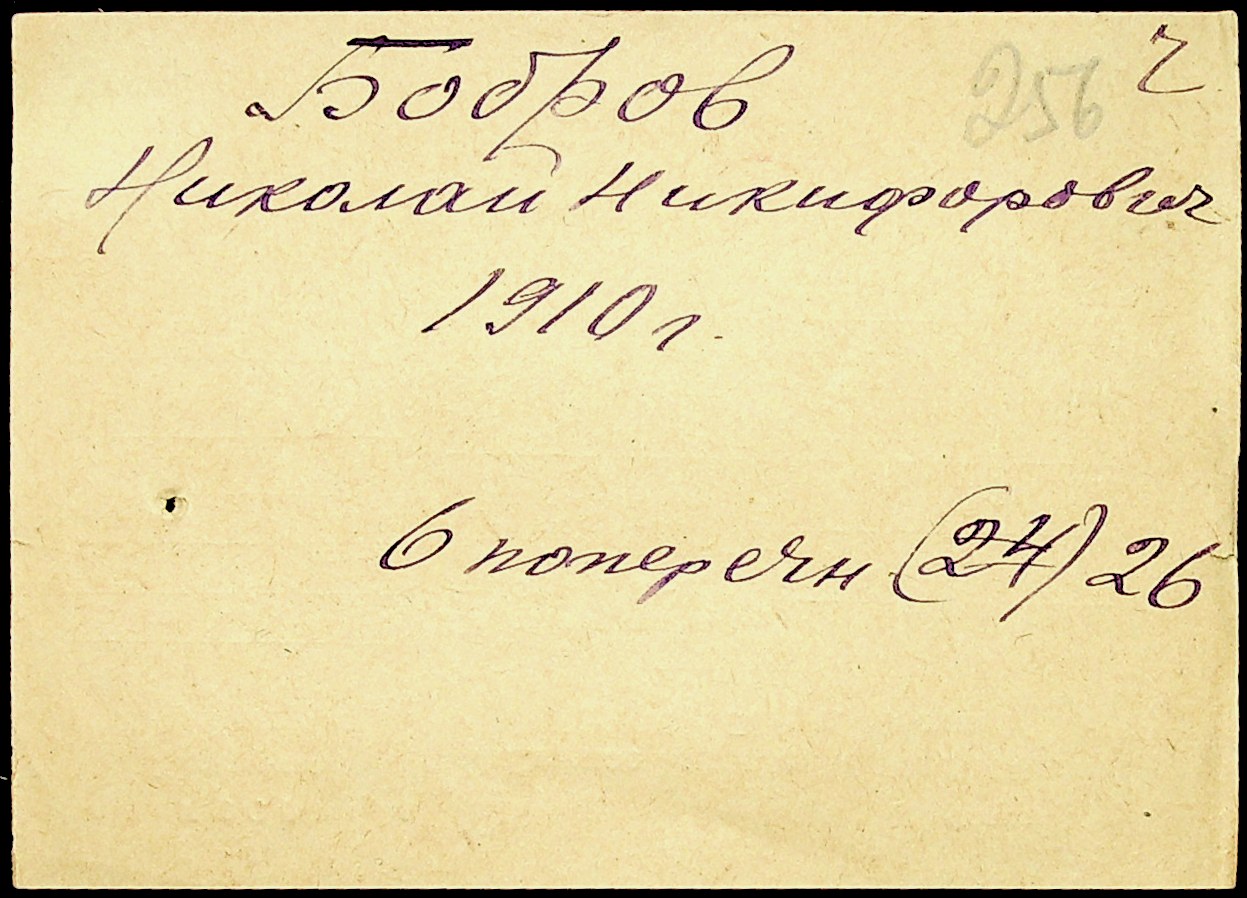 Бобров 256 ч
Николай Никифорович
1910 г.
6 поперечн (24) 26